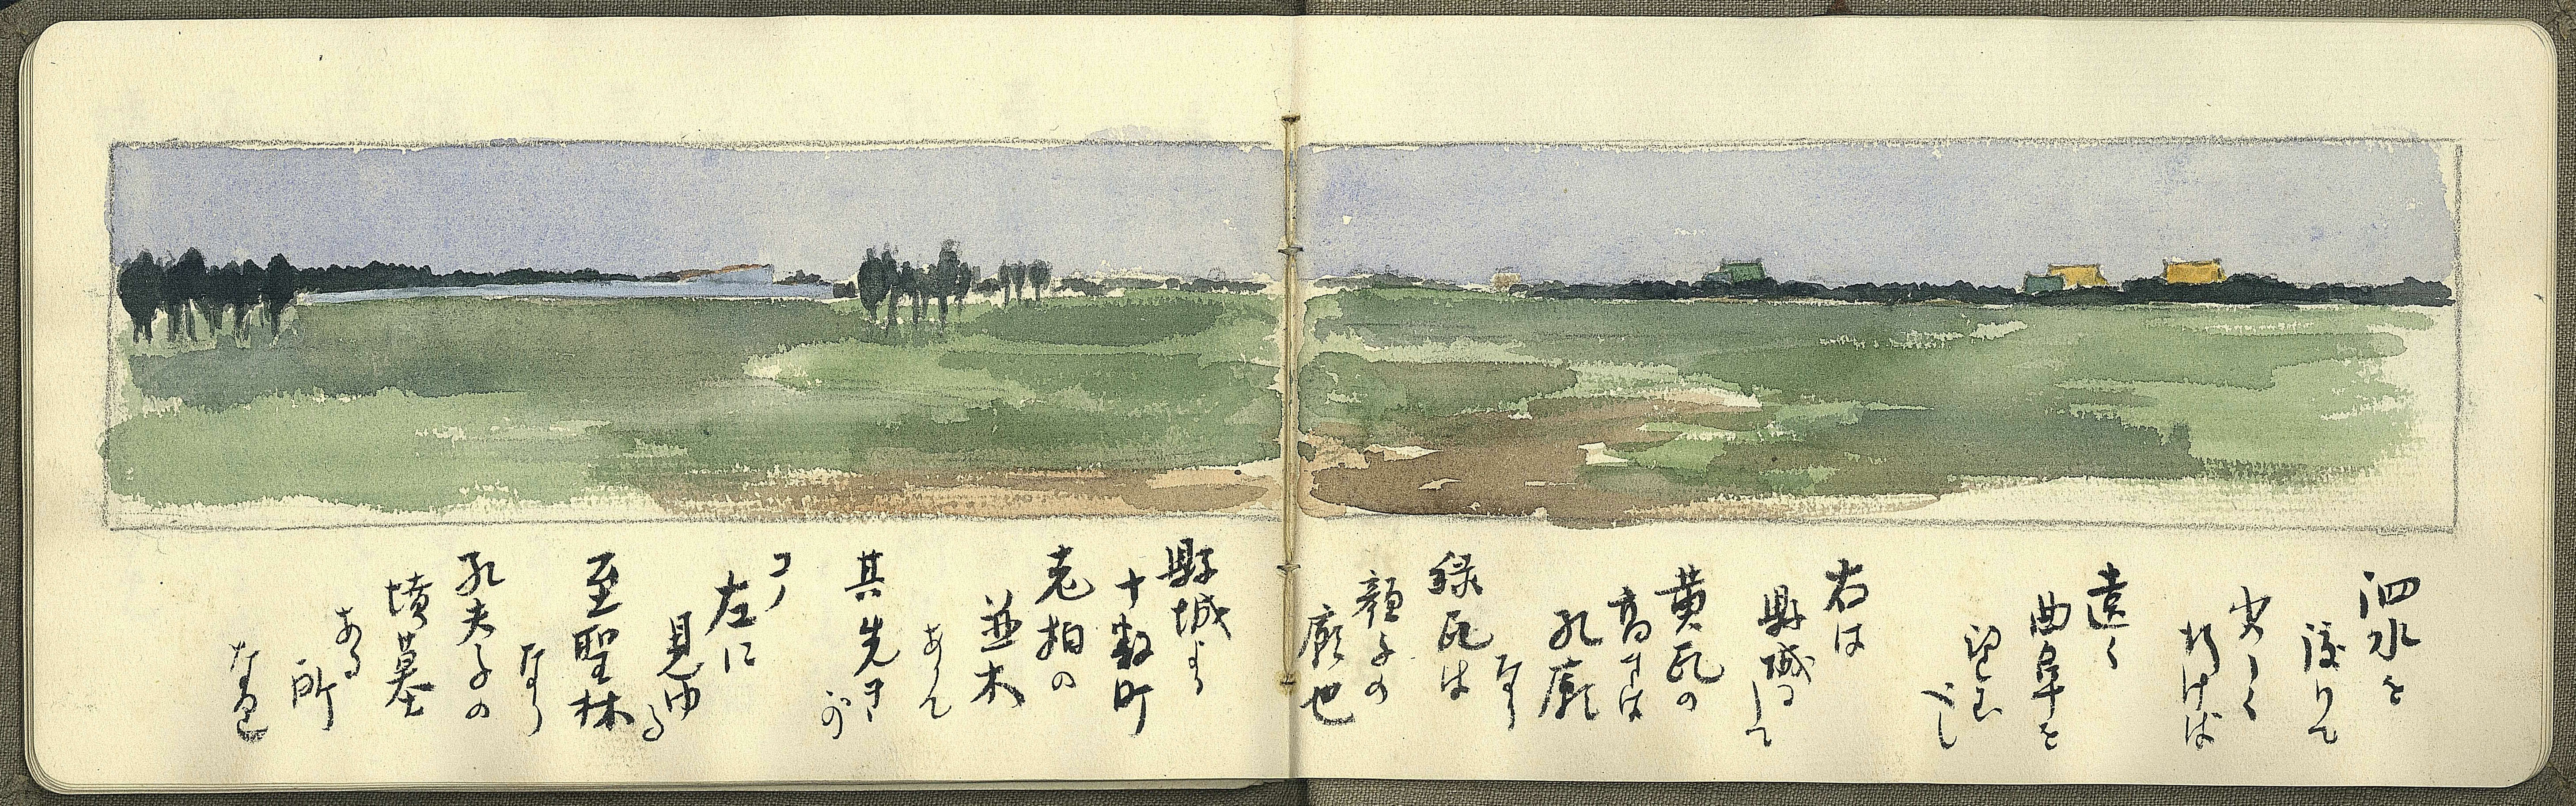 泗水を
渡りて
少しく
行けば
遠く
曲阜を
望む
べし
右は
縣城にして
黄瓦の
高きは
孔廟
なり
緑瓦は
顔子の
廟也
縣城より
十数町
老柏の
並木
ありて
其先き
が
左に
見ゆる
至聖林
なり
孔夫子の
墳墓
ある
所
なり